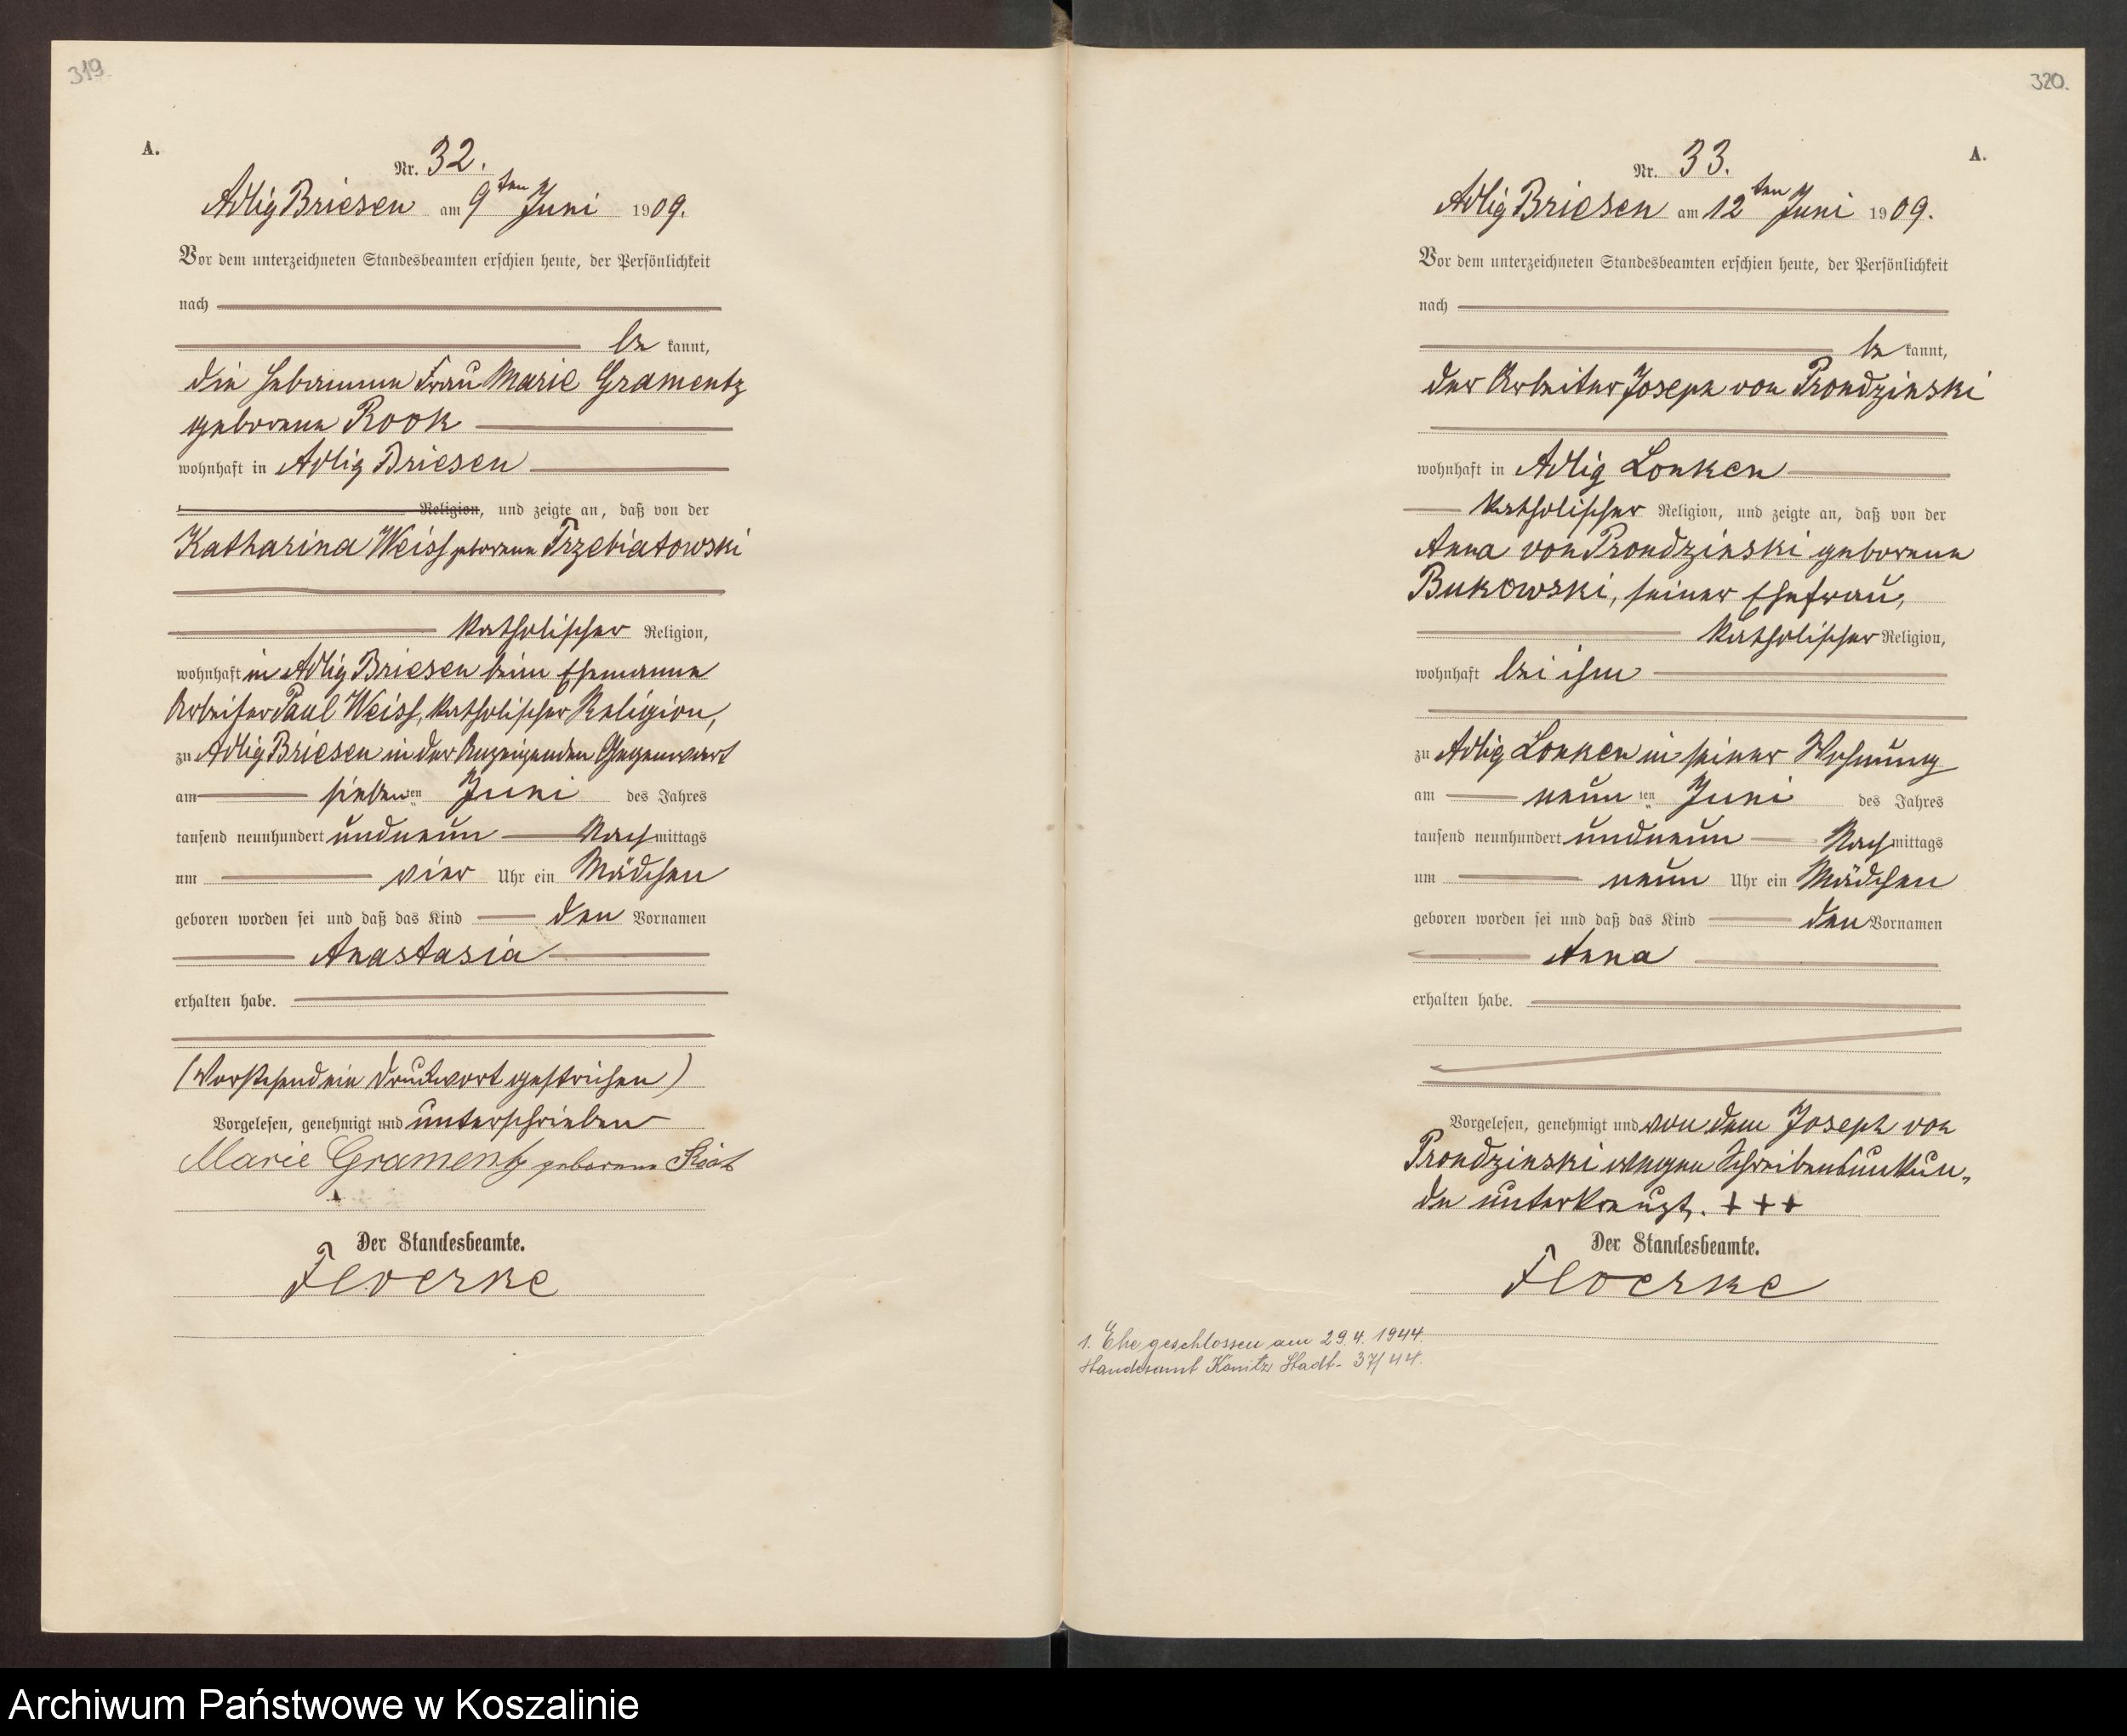 319
A.
Nr. 32.
Adlig Briesen am 9ten Juni 1909.
Vor dem unterzeichneten Standesbeamten erschien heute, der Persönlichkeit
nach
be kannt,
die Hebamme Frau Marie Gramentz
geborene Rook
wohnhaft in Adlig Briesen
Religion, und zeigte an, daß von der
Katharina Weiss geborene Trzebiatowski
katholischer Religion,
wohnhaft in Adlig Briesen beim Ehemanne
Arbeiter Paul Weiss, katholischer Religion,
zu Adlig Briesen in der Anzeigenden Gegenwart
am siebenten Juni des Jahres
tausend neunhundert undneun Nachmittags
um vier Uhr ein Mädchen
geboren worden sei und daß das Kind den Vornamen
Anastasia
erhalten habe.
(Vorstehend ein Druckwort gestrichen)
Vorgelesen, genehmigt und unterschrieben
Marie Gramentz geborene Rook
Der Standesbeamte.
Floerke
320.
A.
Nr. 33.
Adlig Briesen am 12ten Juni 1909.
Vor dem unterzeichneten Standesbeamten erschien heute, der Persönlichkeit
nach
be kannt,
der Arbeiter Joseph von Prondzinski
wohnhaft in Adlig Lonken
katholischer Religion, und zeigte an, daß von der
Anna von Prondzinski geborene
Bukowski, seiner Ehefrau,
katholischer Religion,
wohnhaft bei ihm
zu Adlig Lonken in seiner Wohnung
am neunten Juni des Jahres
tausend neunhundert undneun Nachmittags
um neun Uhr ein Mädchen
geboren worden sei und daß das Kind den Vornamen
Anna
erhalten habe.
Vorgelesen, genehmigt und von dem Joseph von
Prondzinski wegen Schreibensunkun-
de unterkreuzt. +++
Der Standesbeamte.
Floerke
1. Ehe geschlossen am 29.4.1944.
Standesamt Konitz Stadt- 37/44.
Archiwum Państwowe w Koszalinie